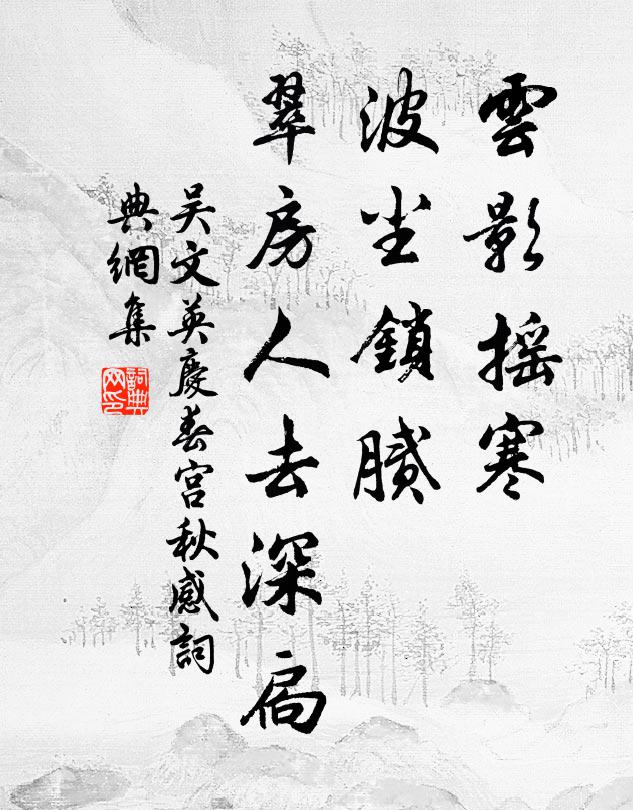 雲影搖寒
波塵鎖膩
翠房人去深扃
吳文英慶春宮秋感詞
典網集
詞典
网印